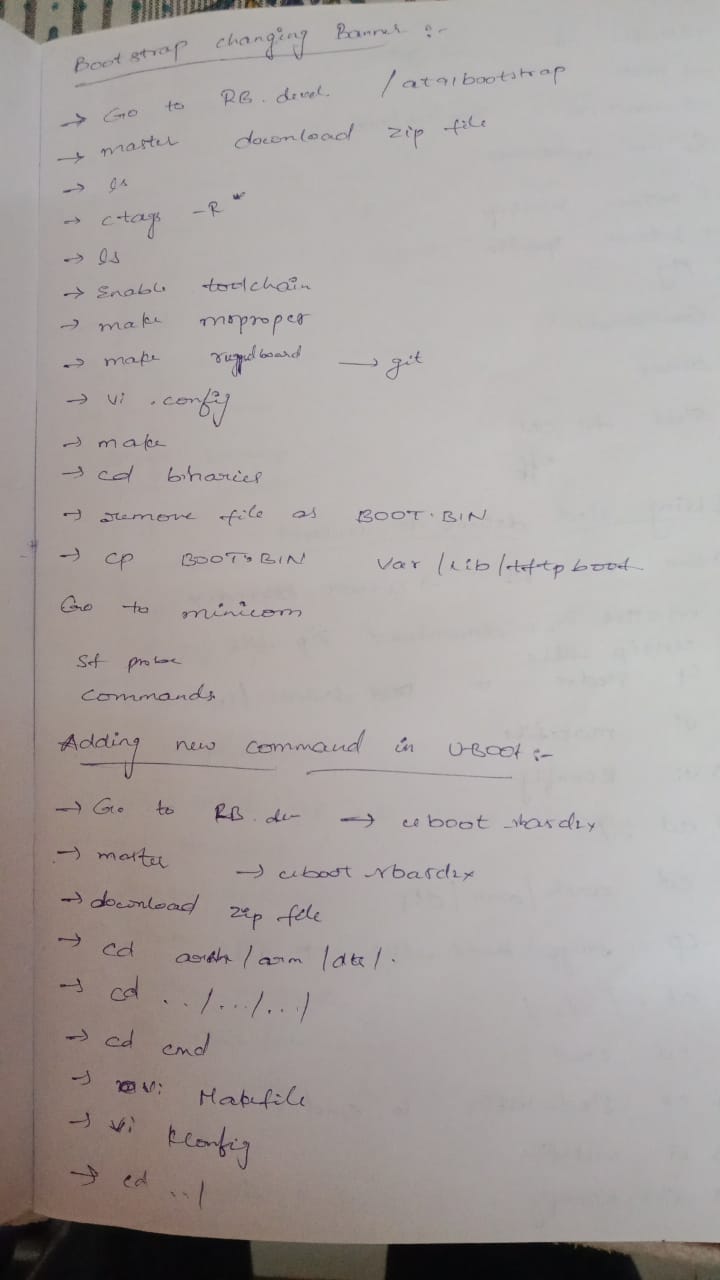 Bootstrap changing Banner :-
→ Go to RB.devel. /at91bootstrap
→ master download zip file
→ ls
→ ctags -R *
→ ls
→ Enable toolchain
→ make mrproper
→ make ruggedboard → git
→ vi .config
→ make
→ cd binaries
→ remove file as BOOT.BIN
→ cp BOOT.BIN var/lib/tftpboot
Go to minicom
sf probe
commands
Adding new command in U-Boot :-
→ Go to RB.de → uboot
→ master → uboot
→ download zip file
→ cd arch/arm/dts/.
→ cd ../../../
→ cd cmd
→ vi Makefile
→ vi Kconfig
→ cd ../